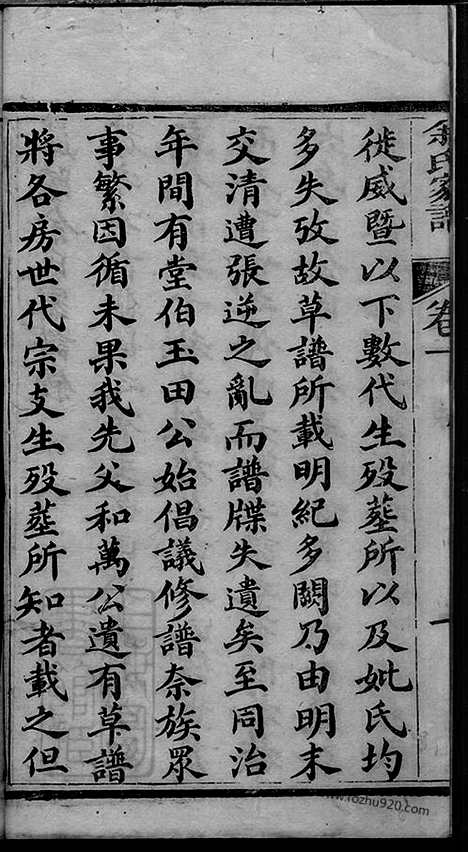 徙威暨以下數代生歿塟所以及妣氏均
多失攷故草譜所載明紀多闕乃由明末
交清遭張逆之亂而譜牒失遺矣至同治
年間有堂伯玉田公始倡議修譜奈族眾
事繁因循未果我先父和萬公遺有草譜
將各房世代宗支生歿塟所知者載之但
氏家譜
卷一
www.fozhu920.com